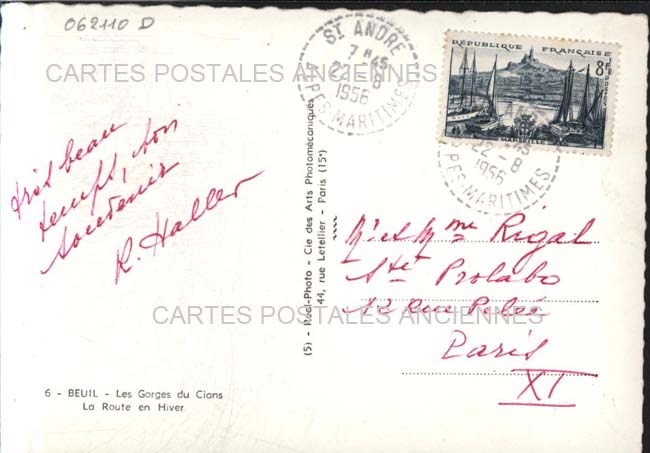 062110 D
ST ANDRE
7 H 45
22 - 8
1956
ALPES-MARITIMES
RÉPUBLIQUE FRANÇAISE
8F
POSTES
MARSEILLE
ST ANDRE
7 H 45
22 - 8
1956
ALPES MARITIMES
CARTES POSTALES ANCIENNES
très beau
temps, bon
souvenir
R. Haller
Mr et Mme Rigal
Sté Prolabo
12 Rue Pelée
Paris
XI
CARTES POSTALES ANCIENNES
(5) - Réal-Photo - Cie des Arts Photomécaniques
44, rue Letellier - Paris (15e)
6 - BEUIL - Les Gorges du Cians
La Route en Hiver